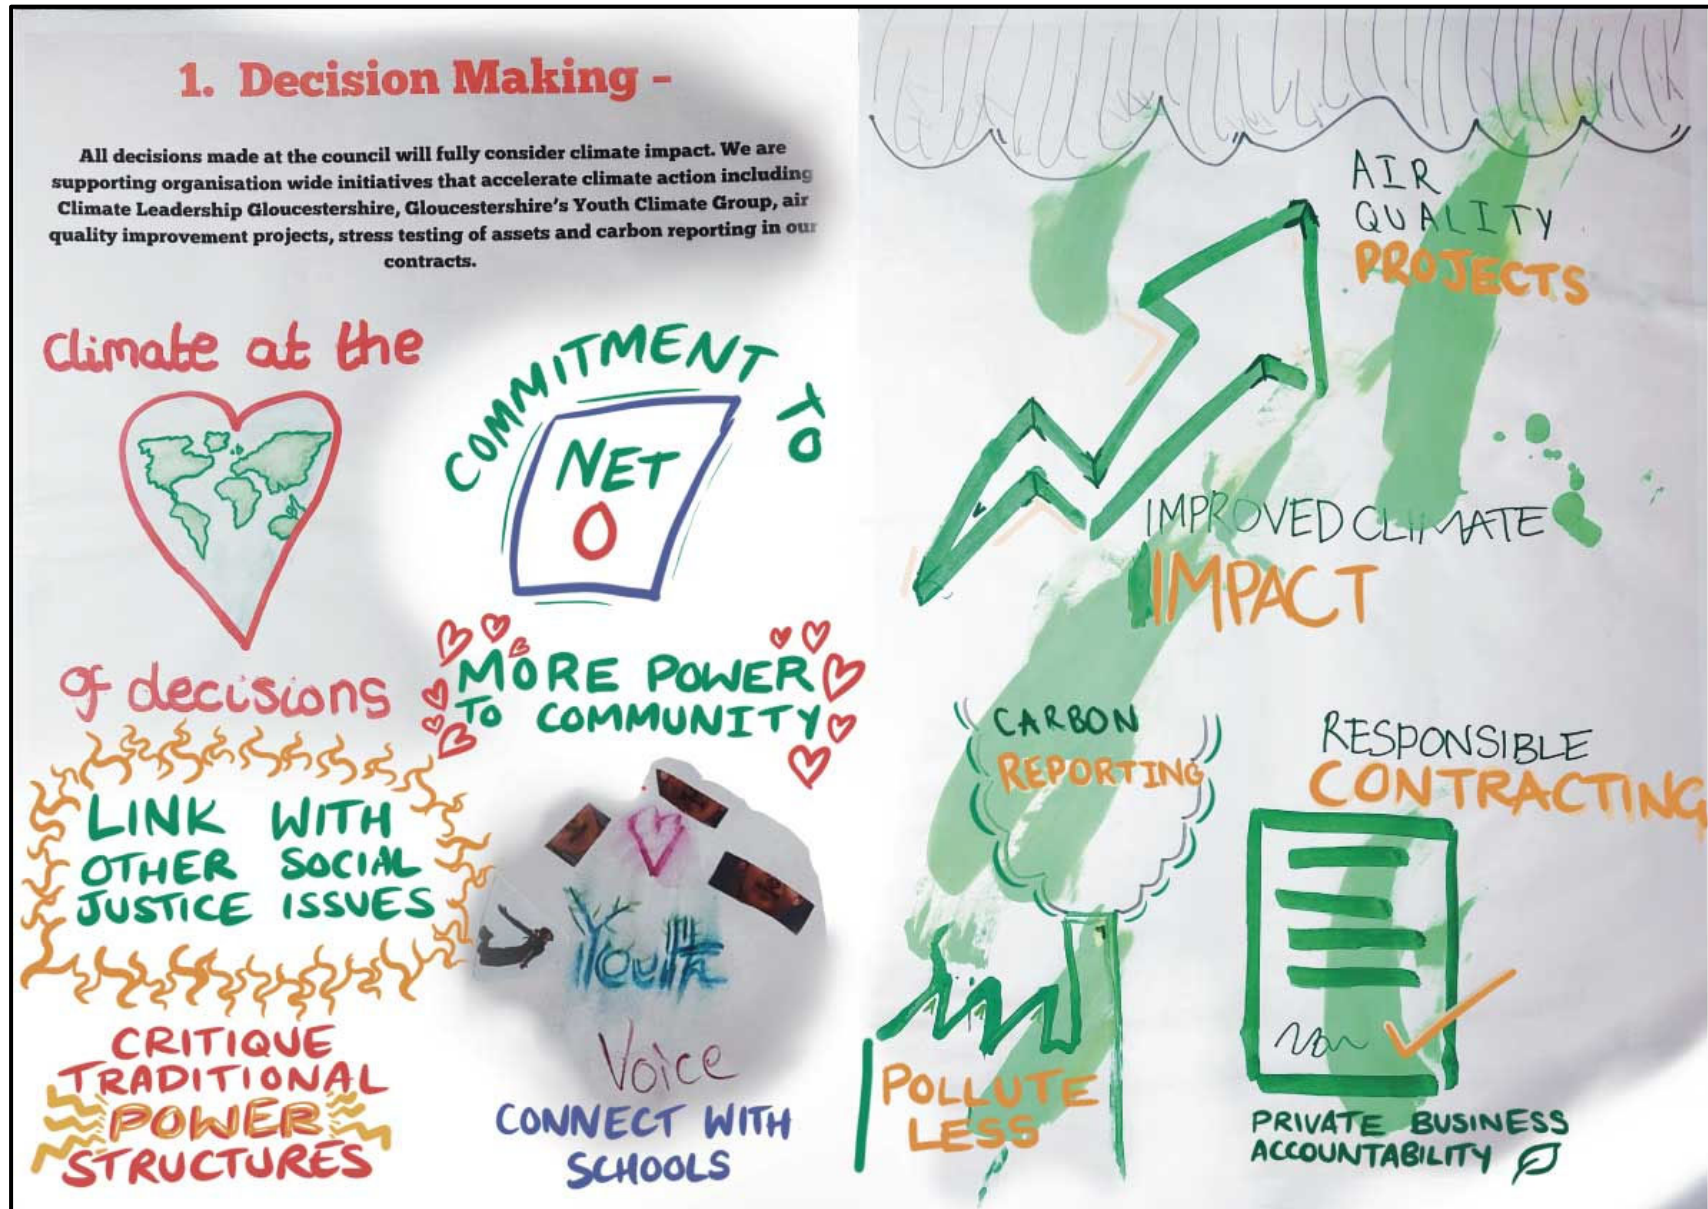 1. Decision Making -
All decisions made at the council will fully consider climate impact. We are
supporting organisation wide initiatives that accelerate climate action including
Climate Leadership Gloucestershire, Gloucestershire's Youth Climate Group, air
quality improvement projects, stress testing of assets and carbon reporting in our
contracts.
climate at the
of decisions
COMMITMENT TO
NET
0
MORE POWER
TO COMMUNITY
LINK WITH
OTHER SOCIAL
JUSTICE ISSUES
CRITIQUE
TRADITIONAL
POWER
STRUCTURES
Youth
Voice
CONNECT WITH
SCHOOLS
AIR
QUALITY
PROJECTS
IMPROVED CLIMATE
IMPACT
CARBON
REPORTING
POLLUTE
LESS
RESPONSIBLE
CONTRACTING
PRIVATE BUSINESS
ACCOUNTABILITY